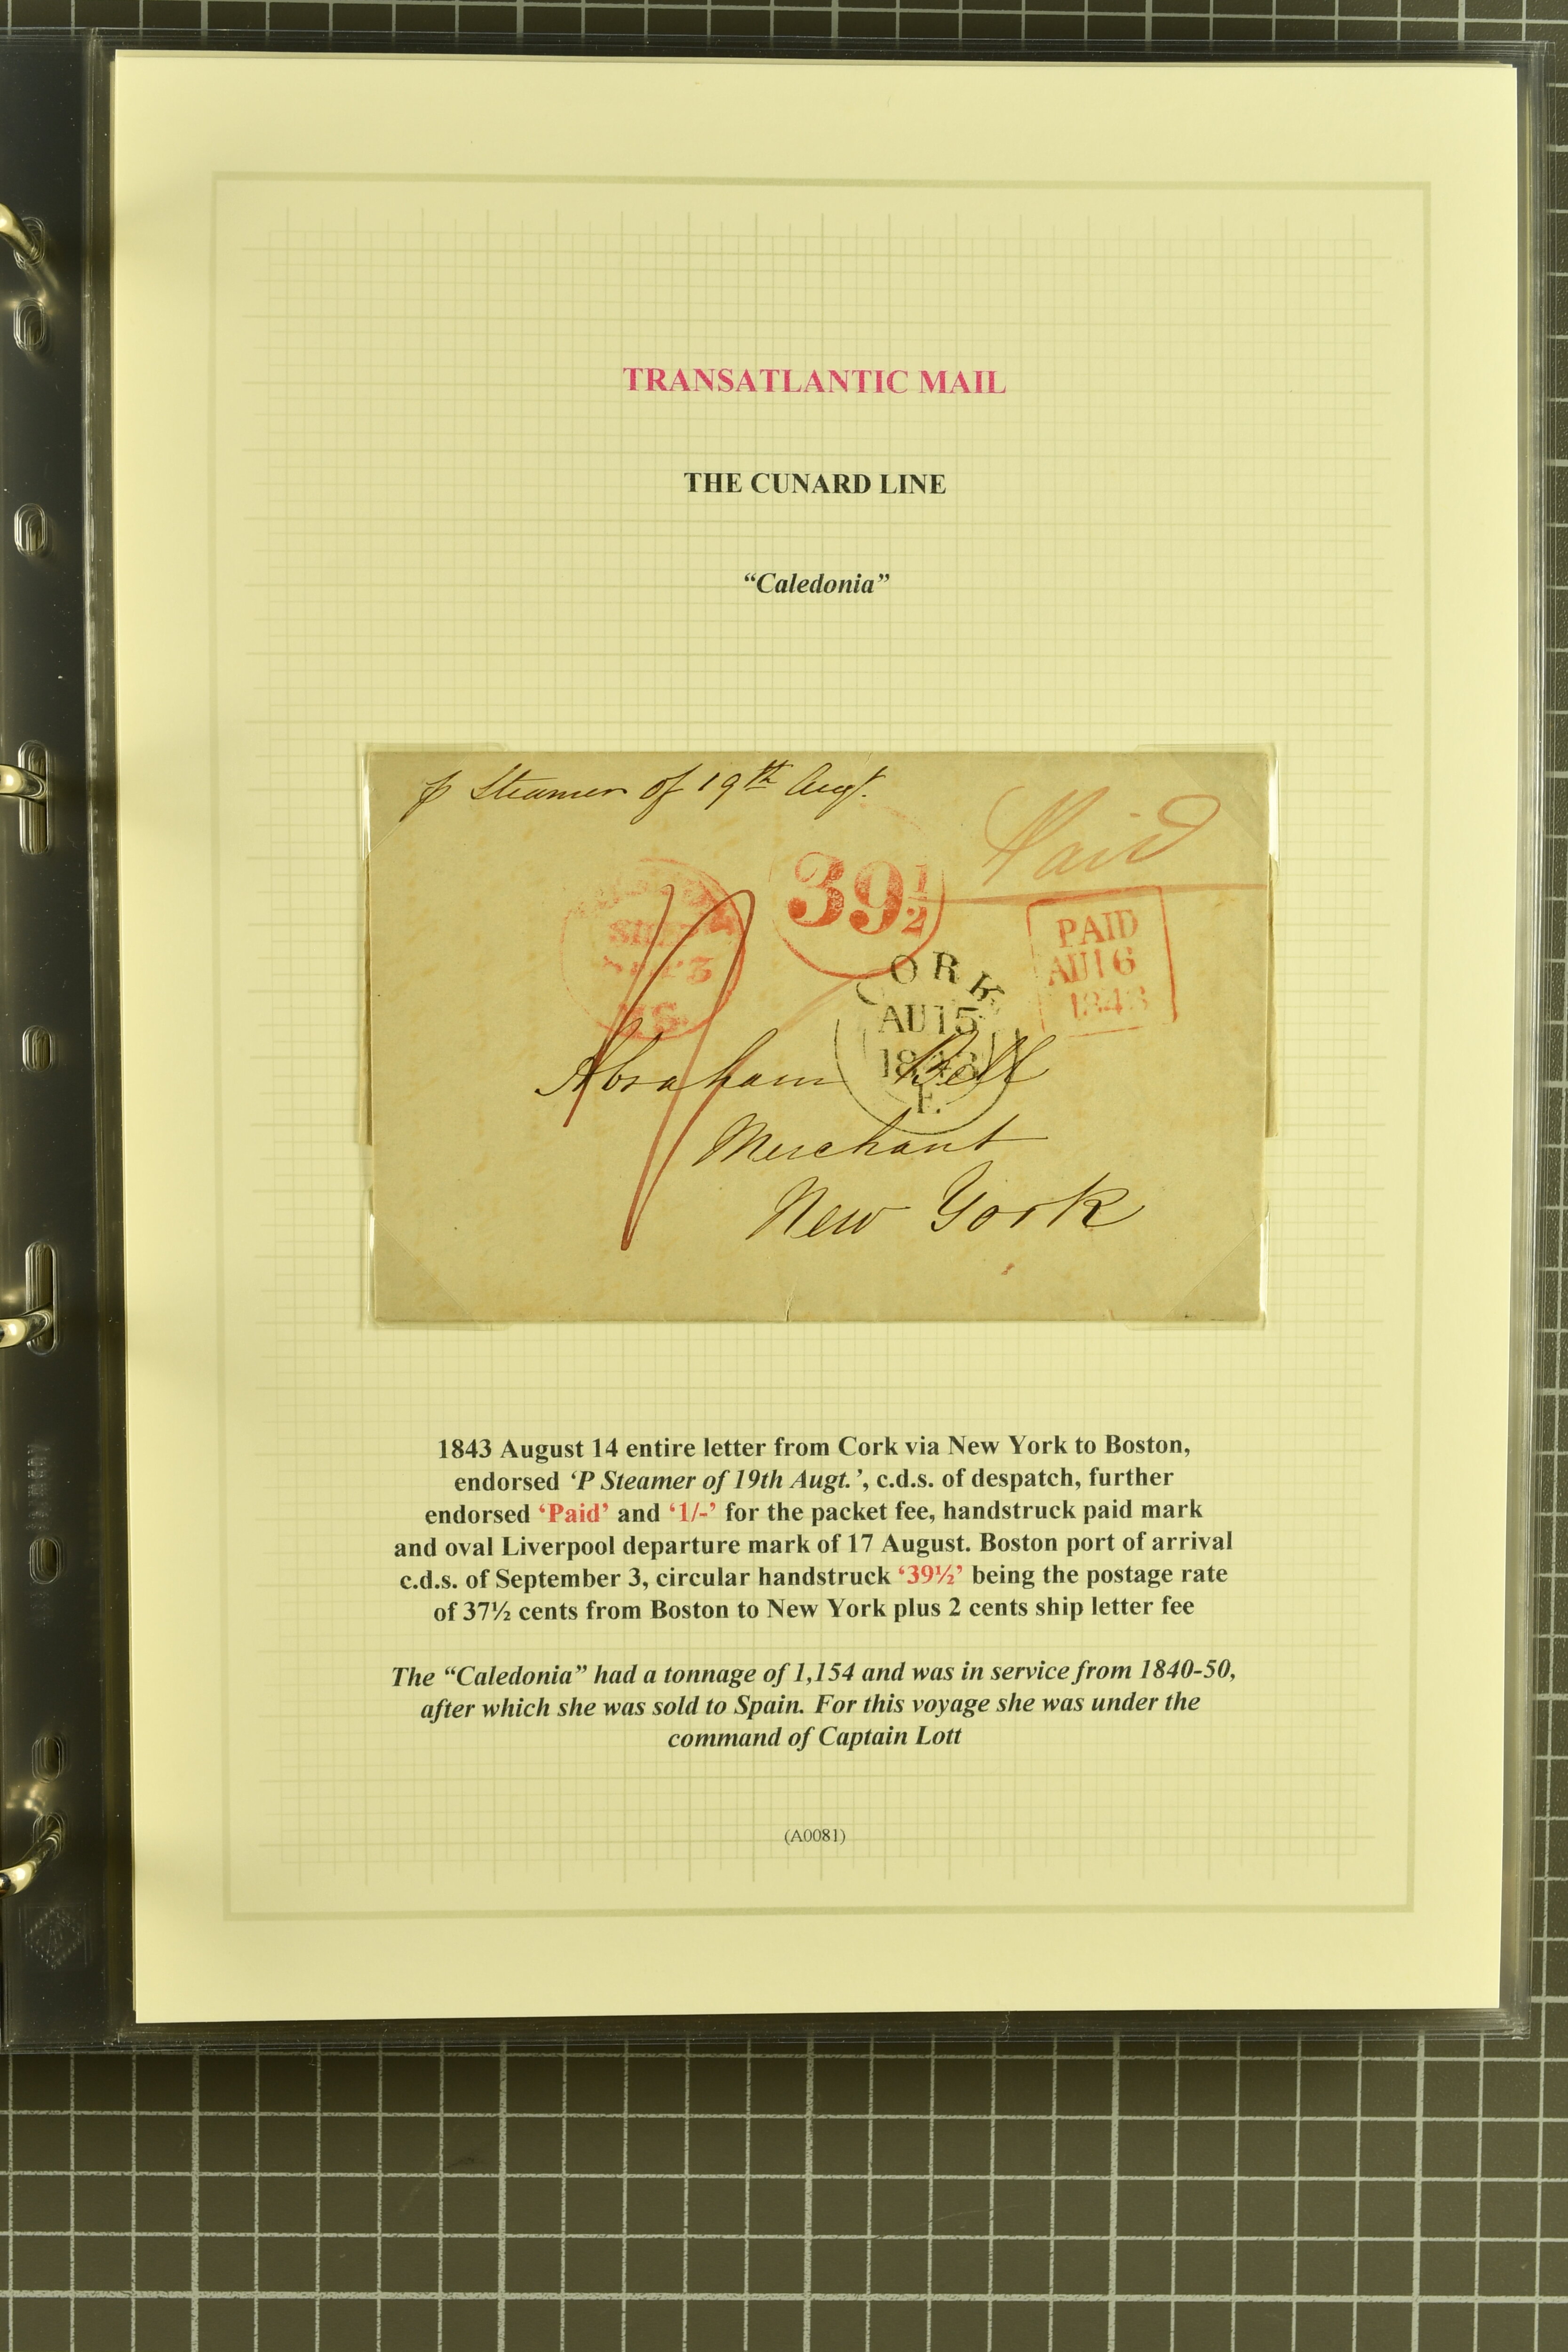 TRANSATLANTIC MAIL
THE CUNARD LINE
“Caledonia”
p Steamer of 19th Augt.
Paid
39½
1/
SHIP
3
MS.
PAID
AU16
1843
CORK
AU15
1843
F.
Abraham Bell
Merchant
New York
1843 August 14 entire letter from Cork via New York to Boston,
endorsed ‘P Steamer of 19th Augt.’, c.d.s. of despatch, further
endorsed ‘Paid’ and ‘1/-’ for the packet fee, handstruck paid mark
and oval Liverpool departure mark of 17 August. Boston port of arrival
c.d.s. of September 3, circular handstruck ‘39½’ being the postage rate
of 37½ cents from Boston to New York plus 2 cents ship letter fee
The “Caledonia” had a tonnage of 1,154 and was in service from 1840-50,
after which she was sold to Spain. For this voyage she was under the
command of Captain Lott
(A0081)